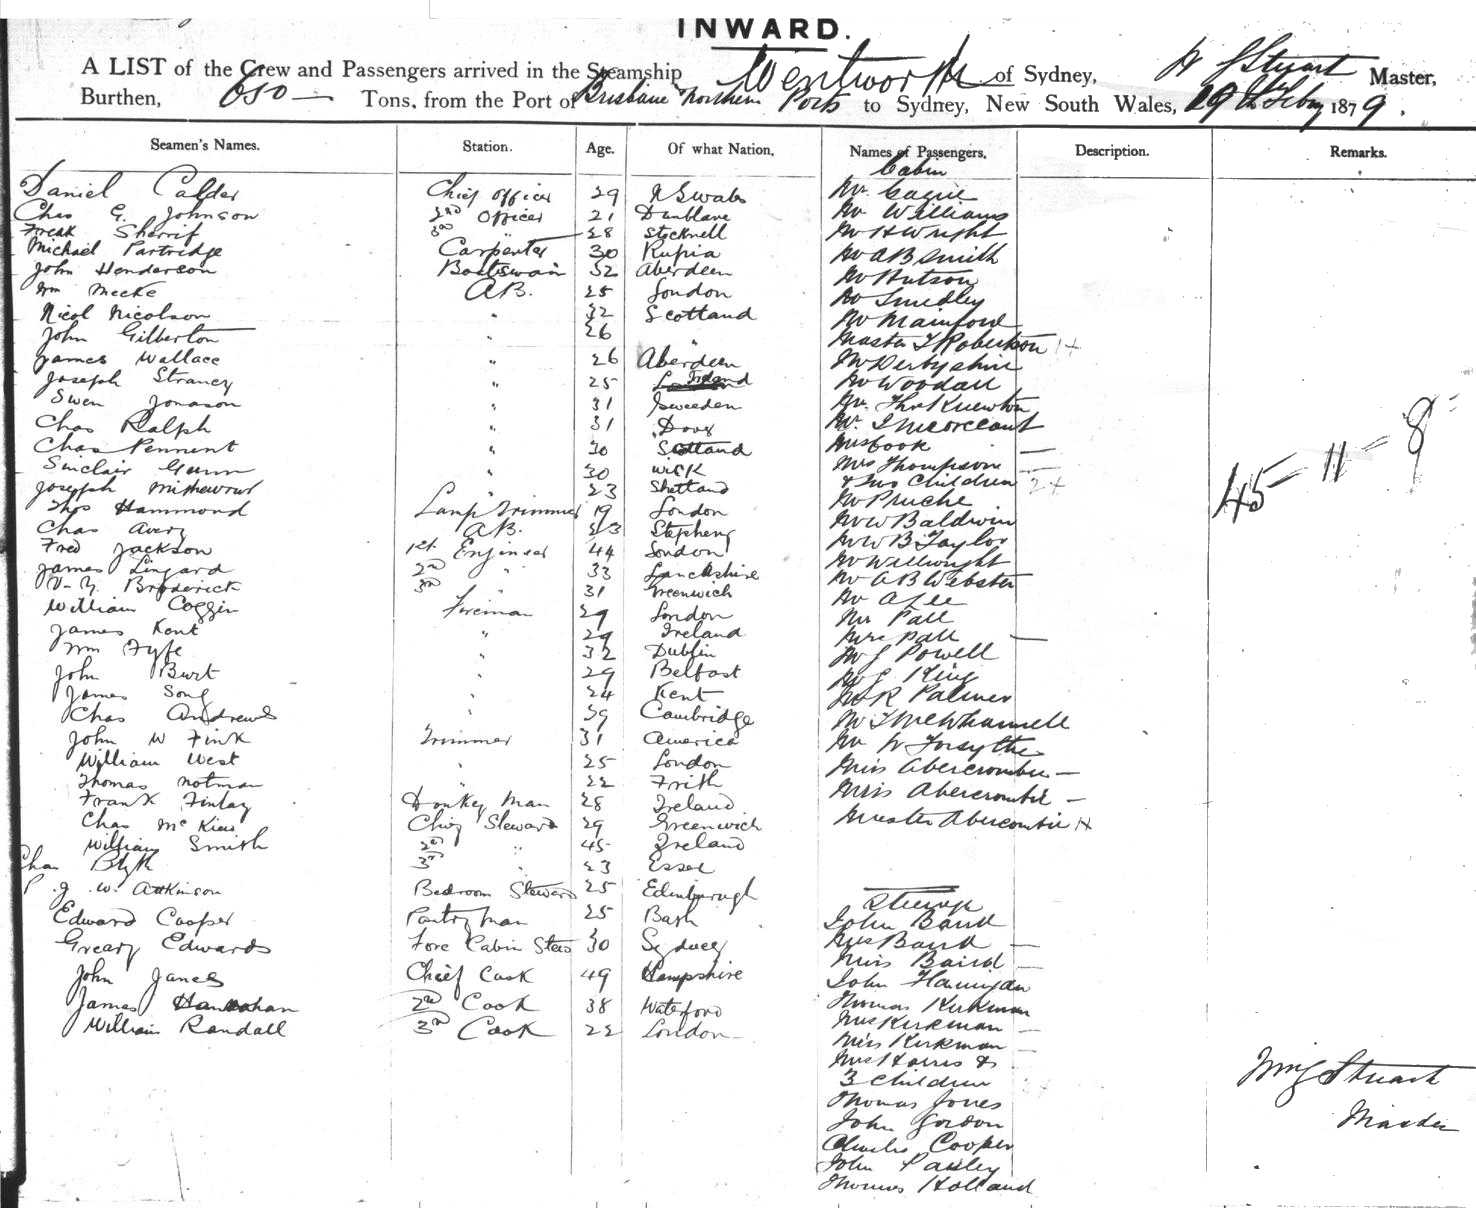 INWARD.
A LIST of the Crew and Passengers arrived in the Steamship Wentworth of Sydney, Stuart Master,
Burthen, 650 — Tons, from the Port of Brisbane Northern Ports to Sydney, New South Wales, 1879.
Seamen's Names. Station. Age. Of what Nation, Names of Passengers, Description. Remarks.
Cabin
Daniel Calder Chief Officer 29 Mr
Chas G. Johnson 2nd Officer 21 Dunblane Mr Williams
Sherrif 3rd " 28 Stocknell Mr H Wright
Michael Partridge Carpenter 30 Mr A B Smith
John Henderson Boatswain 52 Aberdeen Mr Hutson
Wm A.B. 25 London Mr Smedley
Nicol Nicolson " 32 Scotland Mr
John Gilberton " 26 " Master T Robertson
James Wallace " 26 Aberdeen Mr Derbyshire
Joseph " 25 Ireland Mr Woodall
Swen Jonason " 31 Sweeden Mr
Chas Ralph " 31 Mr
Chas Pennent " 30 Scotland Mrs Cook —
Sinclair Gunn " 30 Wick Mrs Thompson —
Joseph " 23 Shetland & Two Children
Thos Hammond Lamp Trimmer 19 London Mr
Chas Avery A.B. 23 Mr W Baldwin
Fred Jackson 1st Engineer 44 London Mr W B Taylor
James Lingard 2nd " 33 Lanckshire Mr
Broderick 3rd " 31 Greenwich Mr A B Webster
William Coggin Fireman 29 London Mr
James Kent " 29 Ireland Mr Pall
Wm Fyfe " 32 Dublin Mrs Pall —
John Burt " 29 Belfast Mr J Powell
James Song " 24 Kent Mr J King
Chas Andrews " 39 Cambridge Mr R Palmer
John W Fink Trimmer 31 America Mr
William West " 25 London Mr W Forsythe
Thomas Notman " 22 Frith Miss Abercrombie —
Frank Finlay Donkey Man 28 Ireland Miss Abercrombie —
Chas Chief Steward 29 Greenwich Master Abercombie
William Smith 2nd " 45 Ireland
Chas 3rd " 23 Essex
P. J. W. Atkinson Bedroom Steward 25 Edinburgh
Steerage
Edward Cooper Pantry man 25 John Baird
Edwards Fore Cabin Stew 30 Sydney Mrs Baird —
Miss Baird —
John Janes Chief Cook 49 Hampshire John
James Hanrahan 2nd Cook 38 Waterford Thomas Kirkman
William Randall 3rd Cook 22 London Mrs Kirkman —
Miss Kirkman —
Mrs Harris &
3 Children
Thomas Jones
John Gordon
Charles Cooper
John Paisley
Thomas Holland
45 - 11 - 8
Stuart
Master